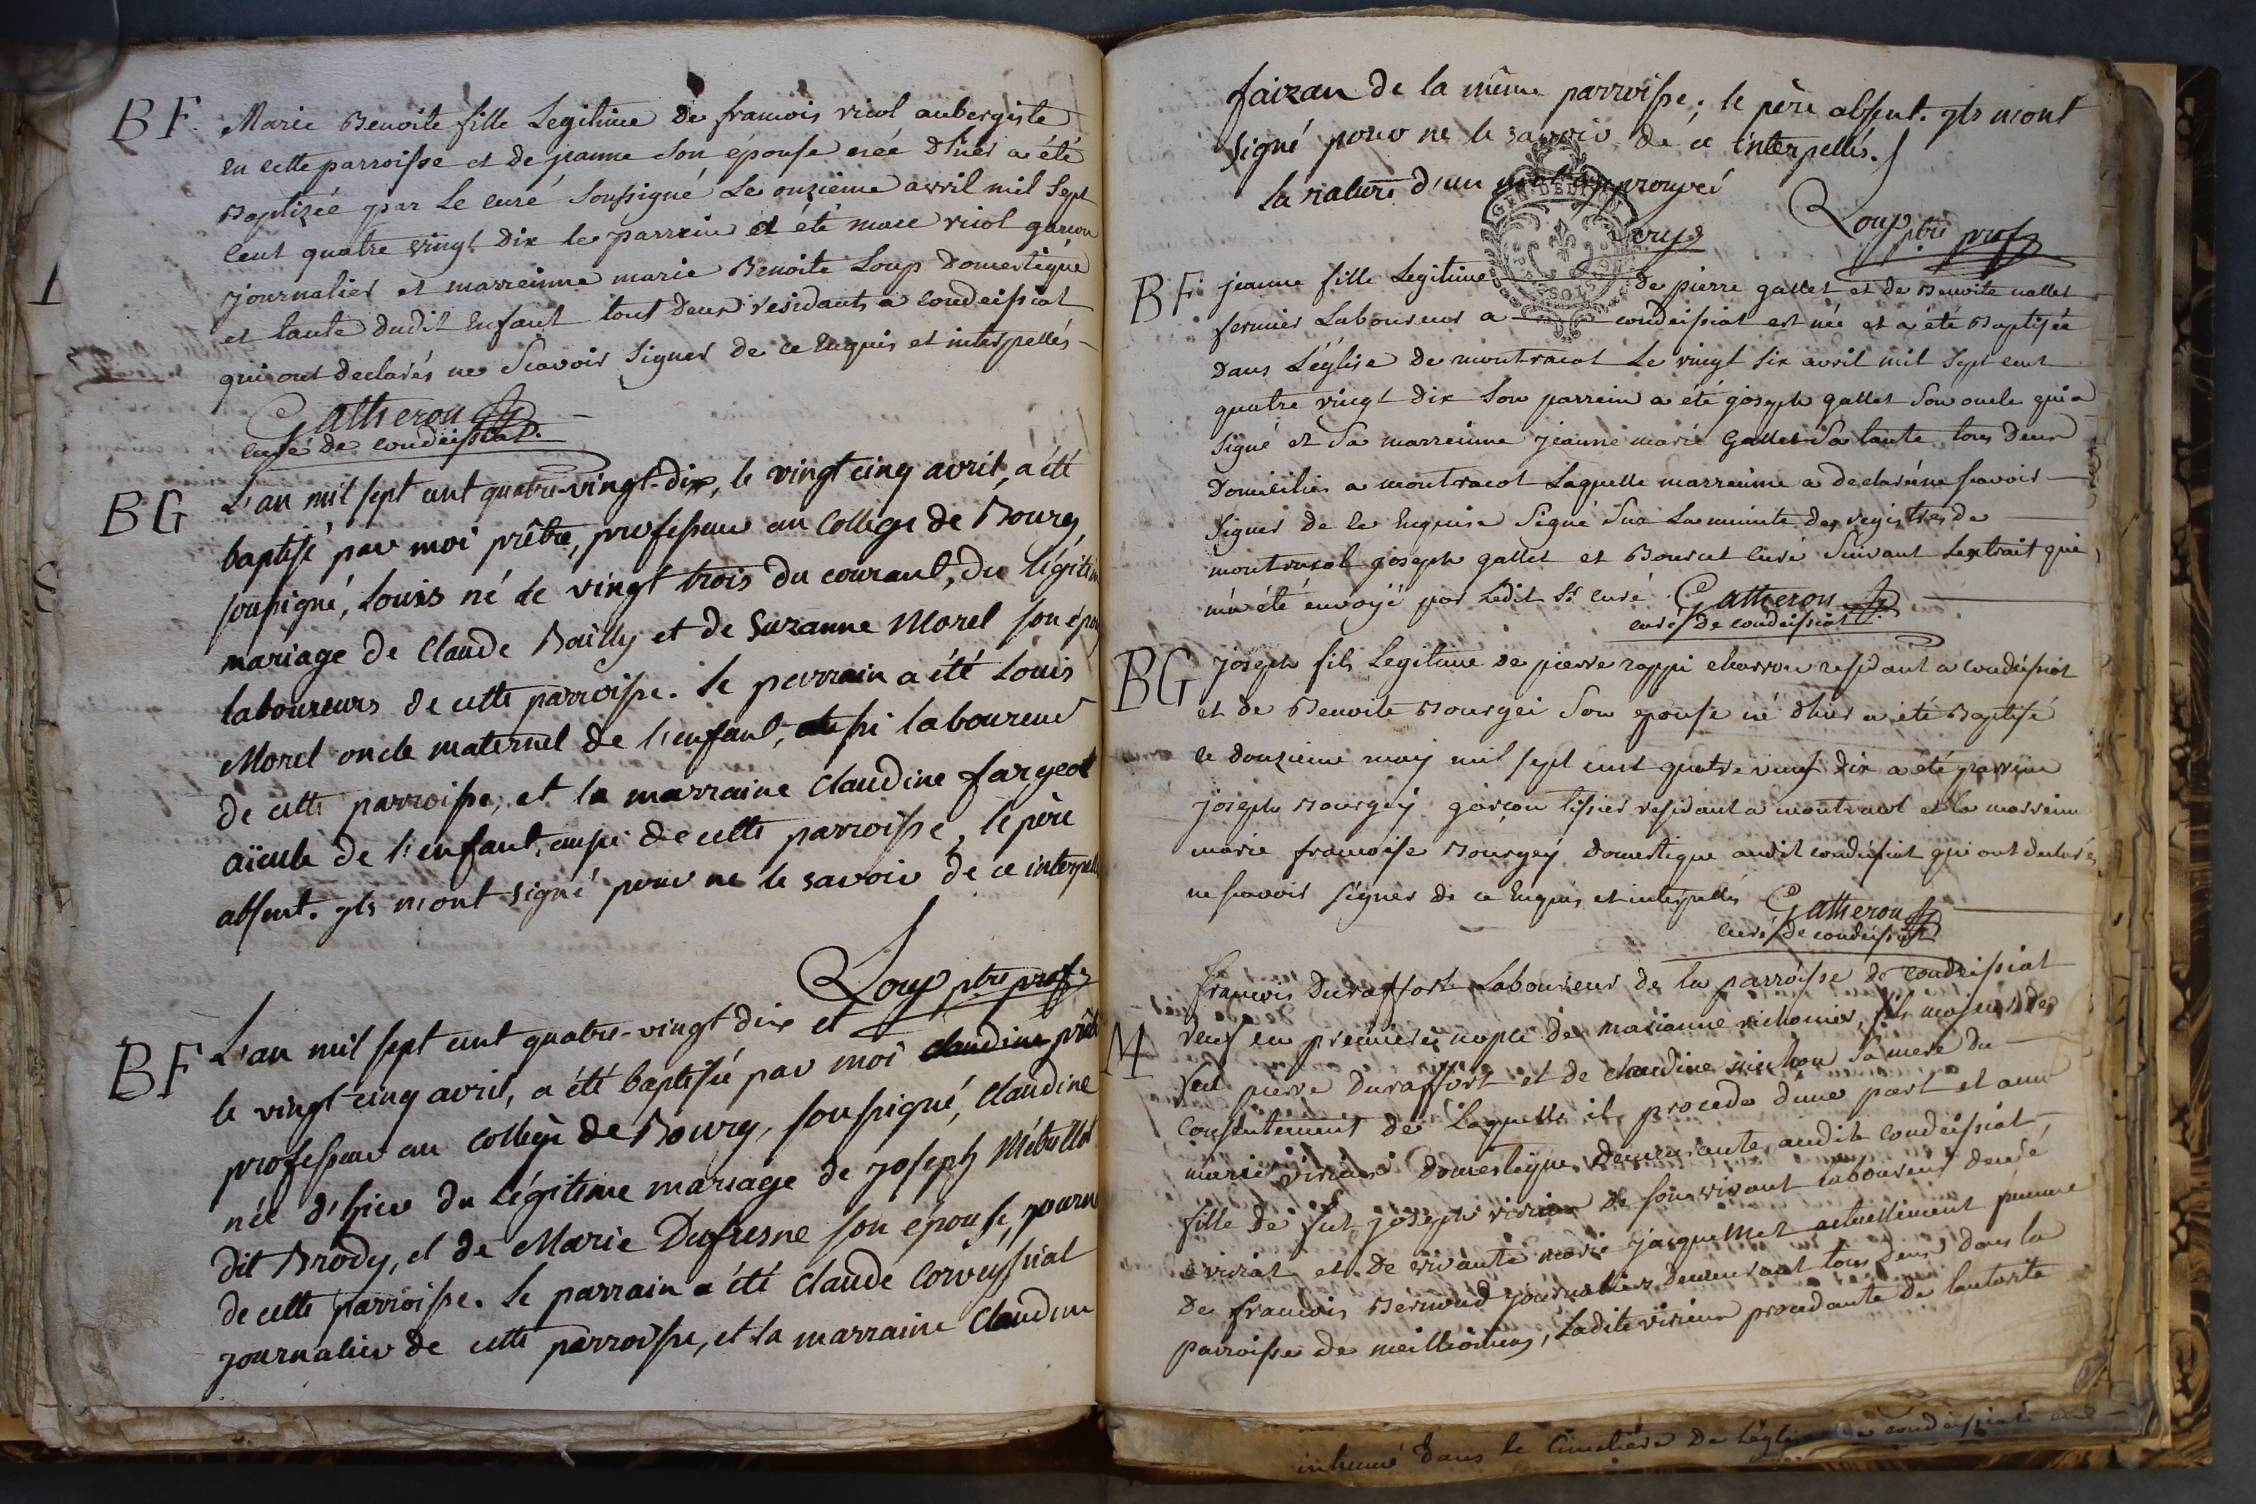 BF
Marie Benoite fille Legitime de francois vicol aubergiste
en cette parroisse et de jeanne son épouse née d'hier a été
Baptizée par le curé soussigné Le onzieme avril mil sept
cent quatre vingt dix le parrein a été marc vicol garcon
journalier et marreinne marie Benoite Loup Domestique
et tante dudit Enfant tout deux residants a condeissiat
qui ont declarés ne Scavoir signer de ce Enquis et interpellés
Gatheron
curé de condeissiat.
BG
L'an mil sept cent quatre-vingt-dix, le vingt cinq avril, a été
baptisé par moi prêtre, professeur au College de Bourg,
soussigné, Louis né le vingt trois du courant, du légitim
mariage de Claude Bailly et de Suzanne Morel son épou
laboureurs de cette parroisse. le parrain a été Louis
Morel oncle maternel de l'enfant, aussi laboureur
de cette parroisse, et la marraine Claudine fargeot
aïeule de l'enfant, aussi de cette parroisse, le père
absent. ils n'ont signé pour ne le savoir de ce interpell
Loup ptre prof
BF
L'an mil sept cent quatre-vingt dix et
le vingt cinq avril, a été baptisée par moi claudine prêt
professeur au collège de Bourg, soussigné, Claudine
née d'hier du légitime mariage de joseph Mébullot
dit Brody, et de Marie Dufresne son épouse,
de cette parroisse. Le parrain a été Claude Corveyssiat
journalier de cette parroisse, et la marraine Claudine
faizan de la même parroisse; le père absent. ils n'ont
signé pour ne le savoir de ce interpellés.
la rature d'un mot approuvée
Loup ptre prof
BF
jeanne fille Legitime de pierre gallet et de Benoite nallet
fermier Laboureur a condeissiat est née et a été Baptisée
dans L'église de montracol Le vingt six avril mil sept cent
quatre vingt dix son parrein a été joseph gallet son oncle qui a
signé et sa marreinne jeanne marie Gallet sa tante tous deux
Domiciliés a montracol Laquelle marreinne a declaré ne scavoir
signer de ce Enquise signé sur La minute des registres de
montracol joseph gallet et Bourcet curé suivant Lextrait qui
m'a été envoyé par Ledit Sr curé Gatheron
curé de condeissiat
BG
joseph fils Legitime de pierre rappi charron residant a condeissiat
et de Benoite Bourgei son epouse né d'hier a été Baptisé
le douzieme may mil sept cent quatre vingt dix a été parrein
joseph Bourgey garçon tissier residant a montracol et la marreinn
marie francoise Bourgey Domestique audit condeissiat qui ont declarés
ne scavoir signer de ce Enquis et interpellés Gatheron
curé de condeissiat
M
francois Duraffort Laboureur de la parroisse de condeissiat
veuf en premiere nopce de marianne fils majeur de
feu pierre Duraffort et de claudine michon sa mere du
consentement de Laquelle il procede d'une part et
marie Domestique demeurante audit condeissiat,
fille de feu joseph de son vivant laboureur
a viriat et de vivante marie jacquemet actuellement femme
de francois Bernoud journaliers demeurant tous deux dans la
parroisse de meillionas, Ladite procedante de lautorité
inhumé dans le cimetiere de L'église de condeissiat